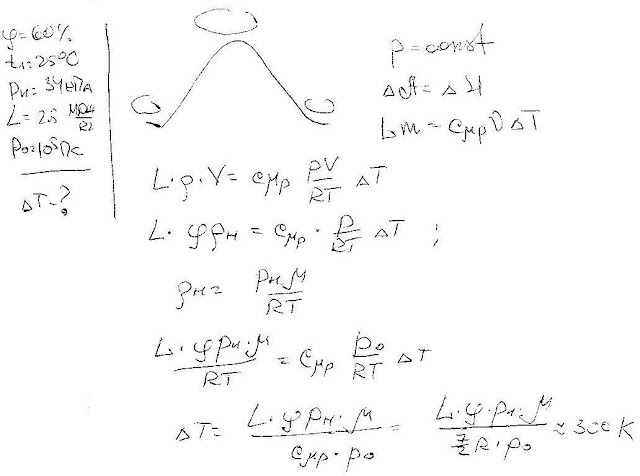 φ = 60%
t₁ = 25°C
Pн =
L = 2.5
P₀ = 10⁵ Пс
ΔT - ?
p = const
Lm = Cμp ν ΔT
L · ρ · V = Cμp pV/RT ΔT
L · φρн = Cμp · p/RT ΔT ;
ρн = Pн · μ/RT
L · φPн · μ/RT = Cμp P₀/RT ΔT
ΔT = L · φPн · μ/Cμp · P₀ = L · φ · Pн · μ/7/2 R · P₀ ≈ 300 K